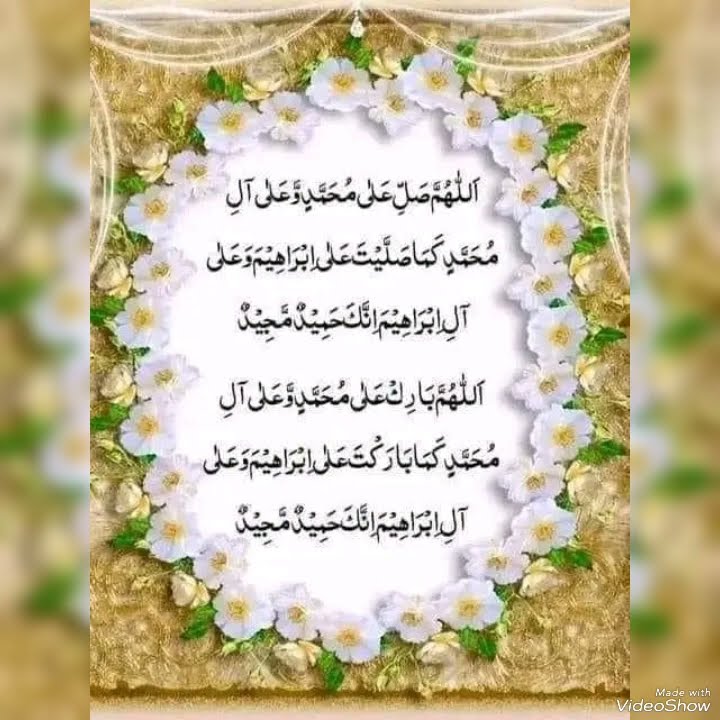 اَللّٰهُمَّ صَلِّ عَلٰى مُحَمَّدٍ وَّعَلٰى آلِ
مُحَمَّدٍ كَمَا صَلَّيْتَ عَلٰى اِبْرَاهِيْمَ وَعَلٰى
آلِ اِبْرَاهِيْمَ اِنَّكَ حَمِيْدٌ مَّجِيْدٌ
اَللّٰهُمَّ بَارِكْ عَلٰى مُحَمَّدٍ وَّعَلٰى آلِ
مُحَمَّدٍ كَمَا بَارَكْتَ عَلٰى اِبْرَاهِيْمَ وَعَلٰى
آلِ اِبْرَاهِيْمَ اِنَّكَ حَمِيْدٌ مَّجِيْدٌ
Made with
VideoShow